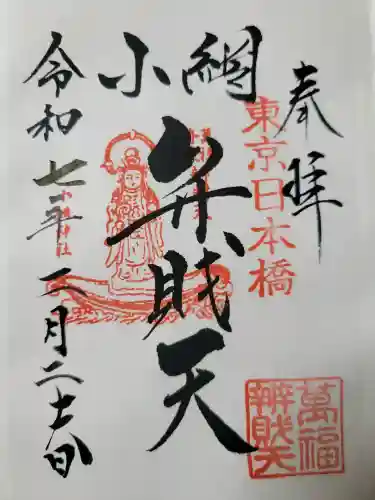 奉拝
東京日本橋
小網
弁財天
萬福
辨財天
令和七年二月二十一日
小網神社